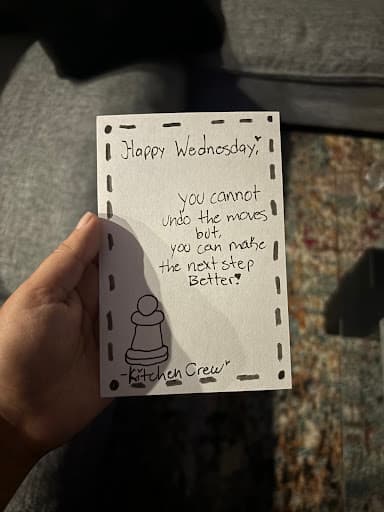 Happy Wednesday,
you cannot
undo the moves
but,
you can make
the next step
Better!
-Kitchen Crew